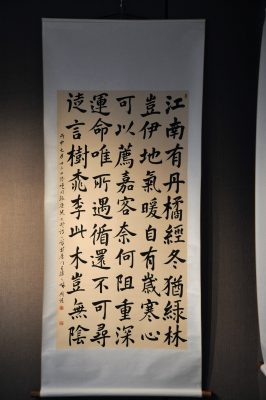 江南有丹橘經冬猶綠林
豈伊地氣暖自有歲寒心
可以薦嘉客奈何阻重深
運命唯所遇循還不可尋
徒言樹桃李此木豈無陰